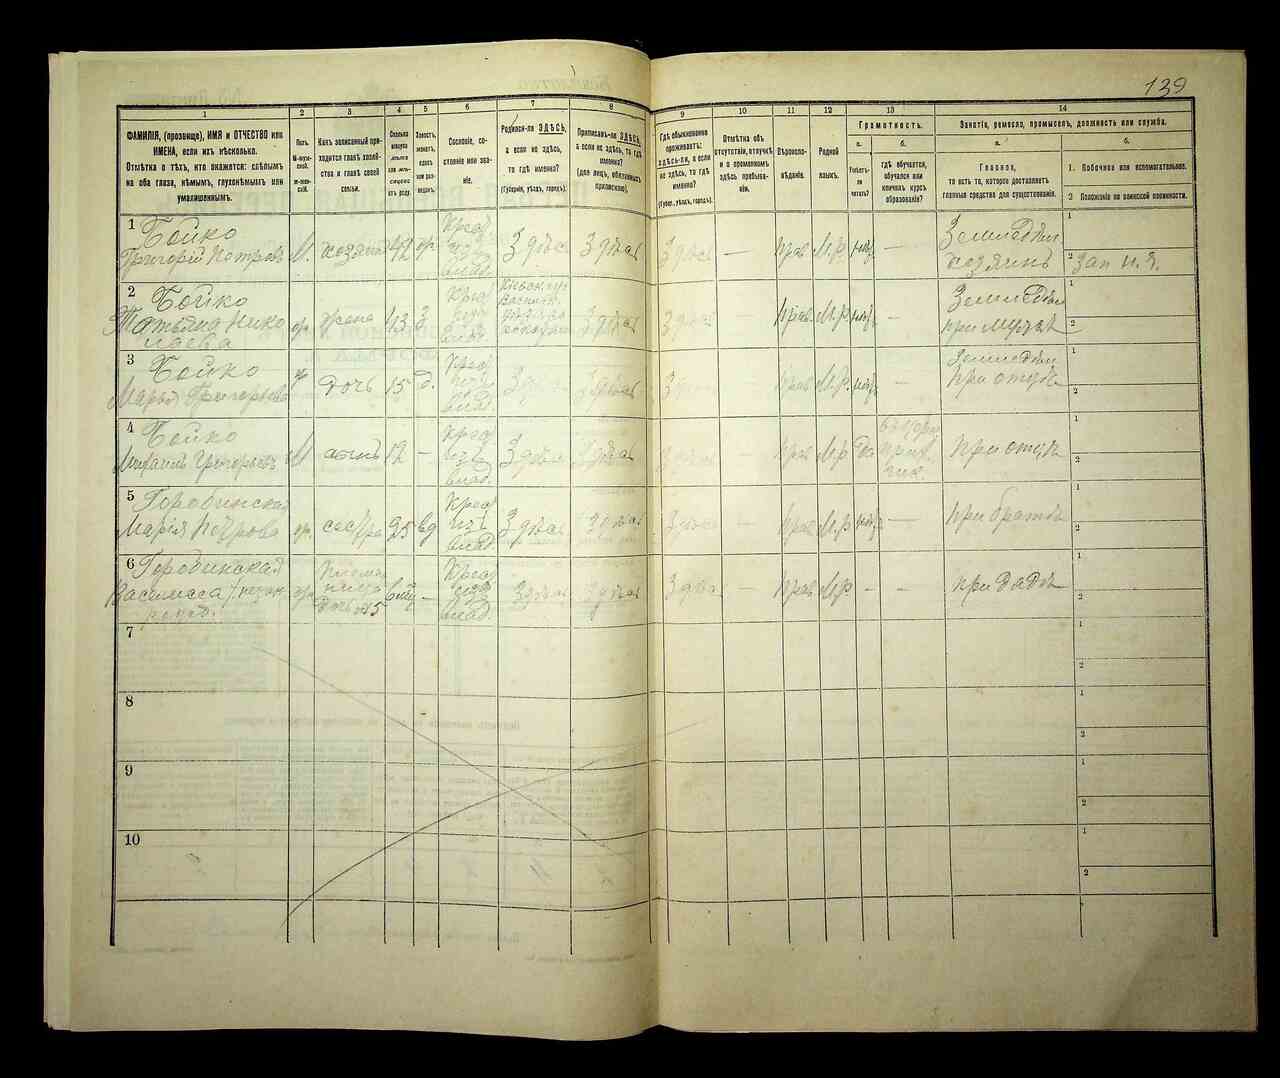 139
1 2 3 4 5 6 7 8 9 10 11 12 13 14
ФАМИЛІЯ, (прозвище), ИМЯ и ОТЧЕСТВО или
ИМЕНА, если ихъ нѣсколько.
Отмѣтка о тѣхъ, кто окажется: слѣпымъ
на оба глаза, нѣмымъ, глухонѣмымъ или
умалишеннымъ.
Полъ.
М-муж-
ской.
Ж-жен-
скій.
Какъ записанный при-
ходится главѣ хозяй-
ства и главѣ своей
семьи.
Сколько
минуло
лѣтъ
или мѣ-
сяцевъ
отъ роду.
Холостъ,
женатъ,
вдовъ
или раз-
веденъ.
Сословіе, со-
стояніе или зва-
ніе.
Родился-ли ЗДѢСЬ,
а если не здѣсь,
то гдѣ именно?
(Губернія, уѣздъ, городъ).
Приписанъ-ли ЗДѢСЬ,
а если не здѣсь, то гдѣ
именно?
(для лицъ, обязанныхъ
припискою).
Гдѣ обыкновенно
проживаетъ:
здѣсь-ли, а если
не здѣсь, то гдѣ
именно?
(Губер., уѣздъ, городъ).
Отмѣтка объ
отсутствіи, отлучкѣ
и о временномъ
здѣсь пребыва-
ніи.
Вѣроиспо-
вѣданіе.
Родной
языкъ.
Грамотность.
а.
Умѣетъ-
ли
читать?
б.
гдѣ обучается,
обучался или
кончилъ курсъ
образованія?
Занятіе, ремесло, промыселъ, должность или служба.
а.
Главное,
то есть то, которое доставляетъ
главныя средства для существованія.
б.
1. Побочное или вспомогательное.
2 Положеніе по воинской повинности.
1 Бойко
Григорій Петровъ М. хозяинъ 42 Крес. изъ влад. Здѣсь Здѣсь Здѣсь — Прав М.Р. — Земледѣл. хозяинъ 1
2 Зап.
2 Бойко
Татьяна Нико
лаева ж. жена 43 З Крес. изъ влад. Здѣсь Здѣсь — Прав. М.Р. — Земледѣл. при мужѣ 1
2
3 Бойко
Марья Григорьева ж дочь 15 д. Крес. изъ влад. Здѣсь Здѣсь Здѣсь — Прав М.Р. — Земледѣл. при отцѣ 1
2
4 Бойко
Михаилъ Григорьевъ М 12 — Крес. изъ влад. Здѣсь Здѣсь Здѣсь — Прав М.Р да при отцѣ 1
2
5 Горобинская
Марія Петрова ж. сестра вд Крес. изъ влад. Здѣсь Здѣсь Здѣсь — Прав М.Р — при братѣ 1
2
6 Горобинская
Василисса ж. — Крес. изъ влад. Здѣсь Здѣсь Здѣсь — Прав. М.Р - - при дядѣ 1
2
7 1
2
8 1
2
9 1
2
10 1
2